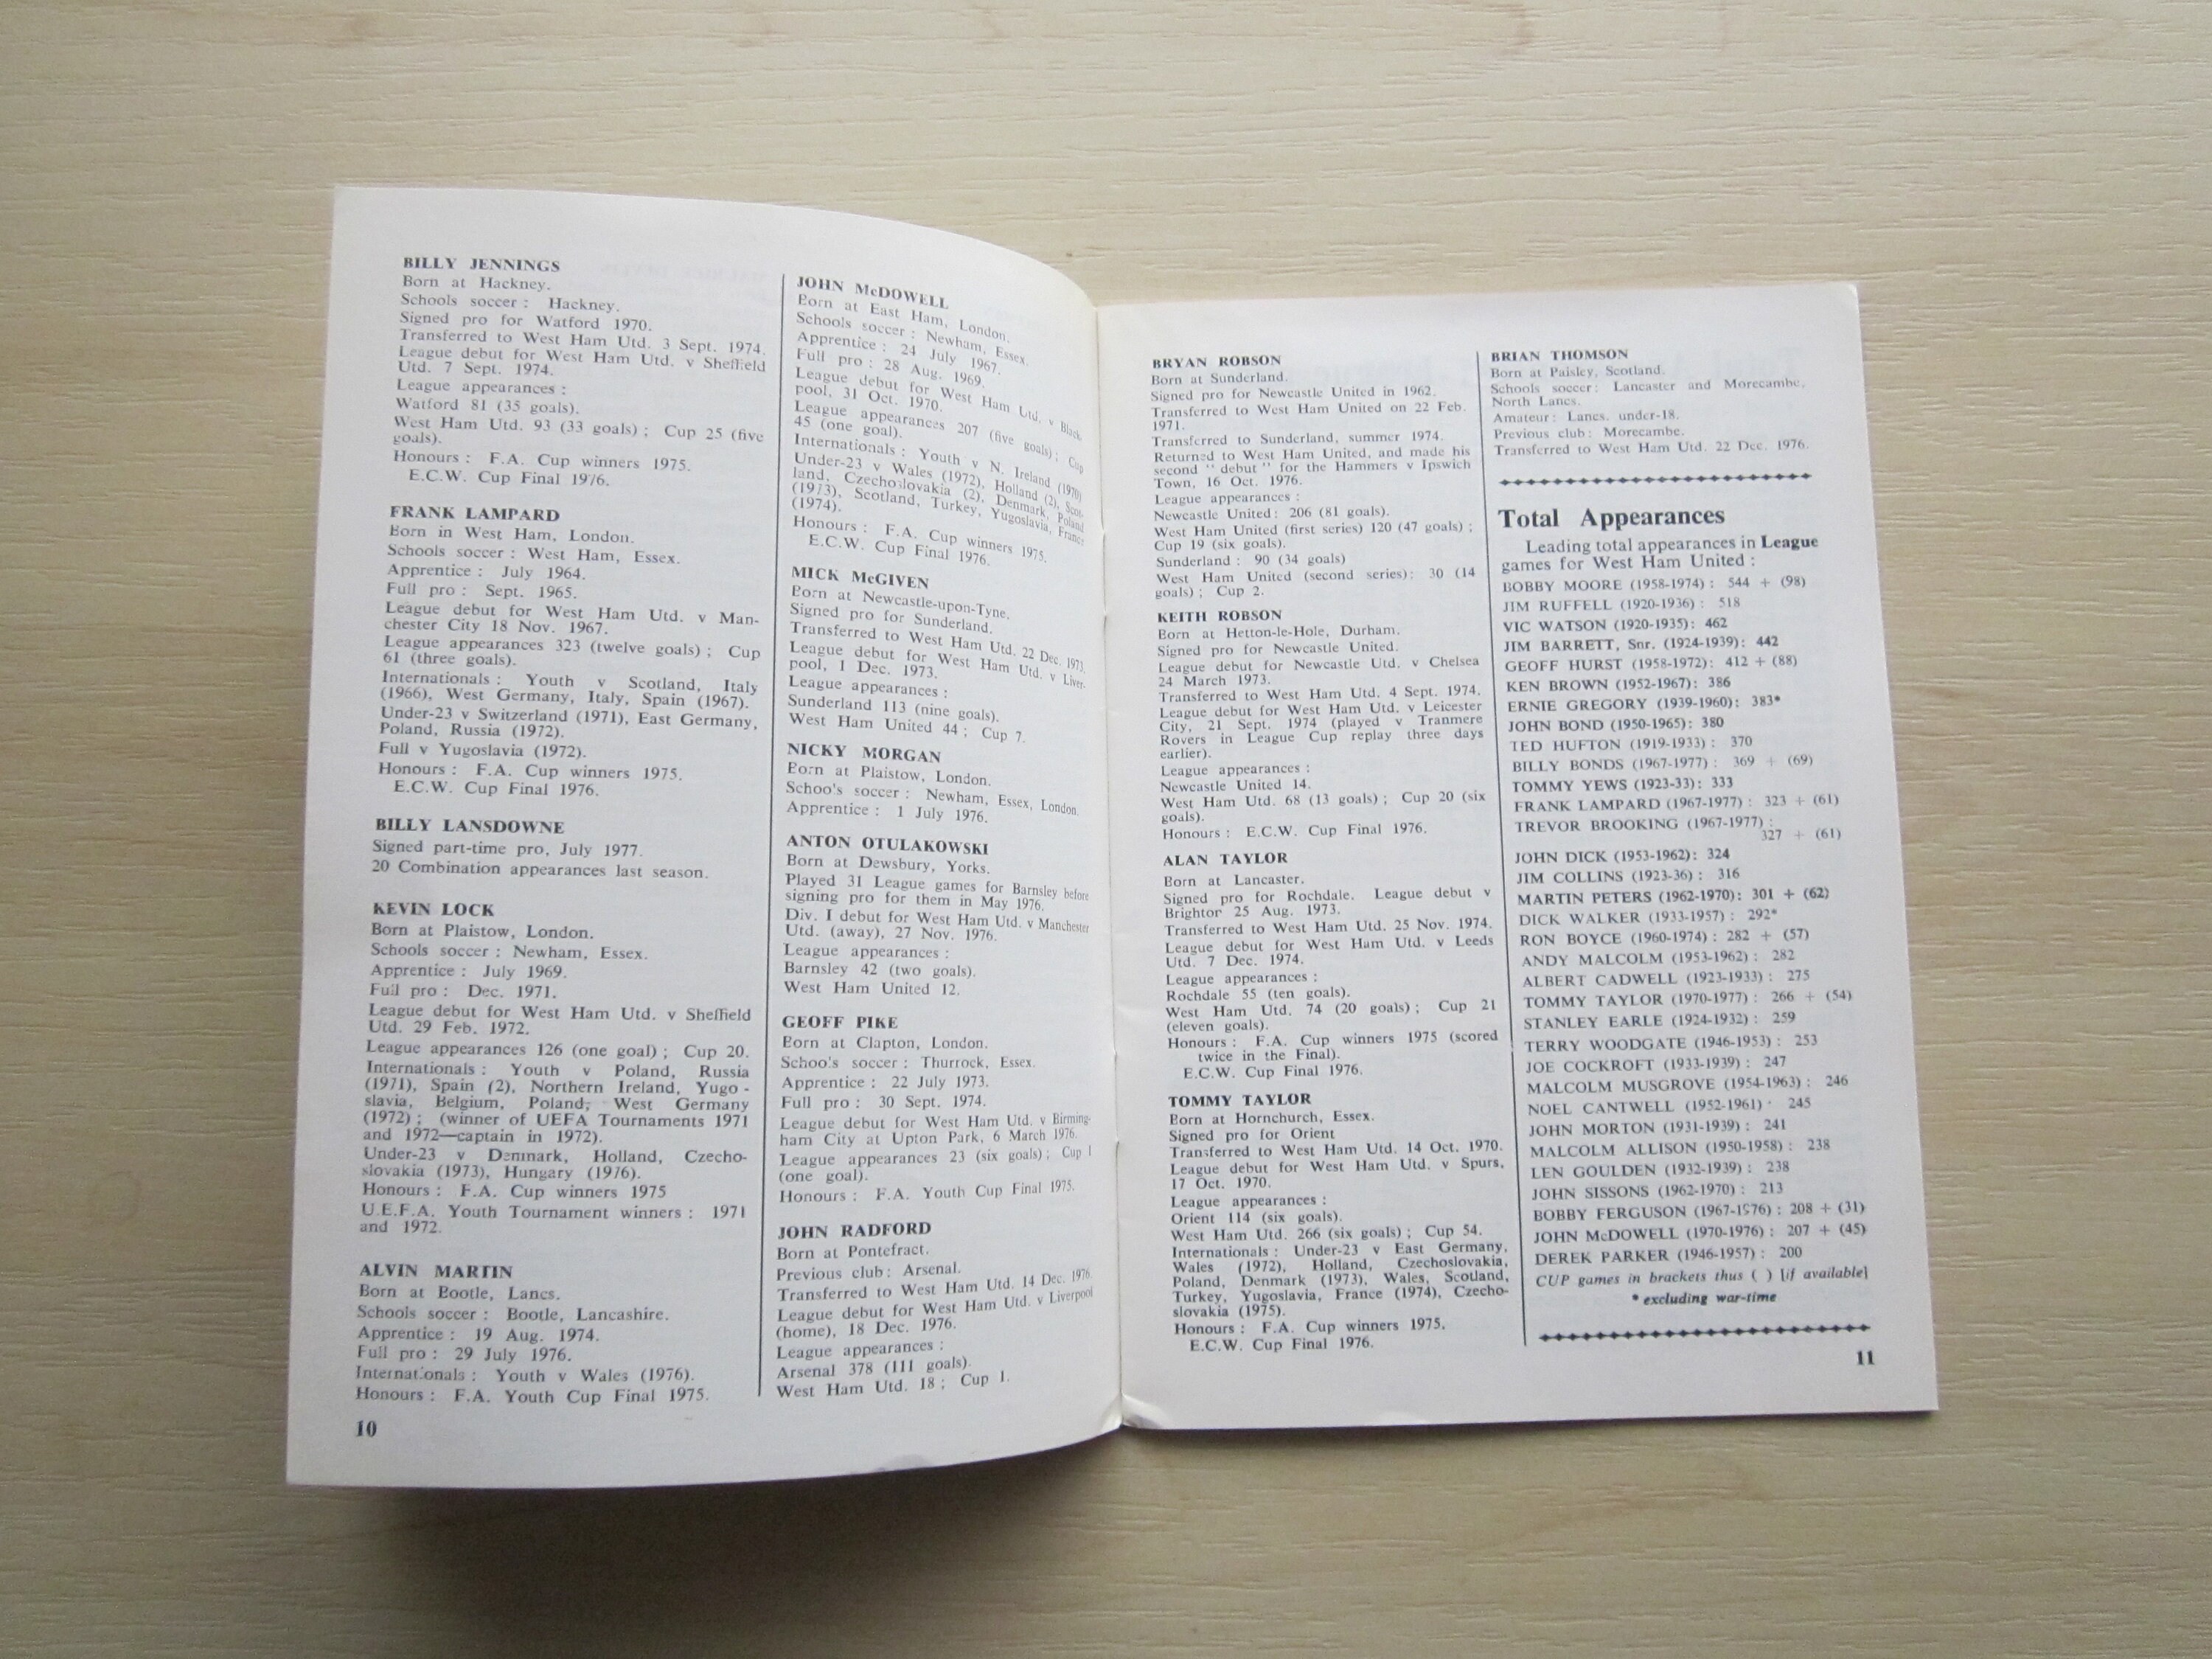 BILLY JENNINGS
Born at Hackney.
Schools soccer : Hackney.
Signed pro for Watford 1970.
Transferred to West Ham Utd. 3 Sept. 1974.
League debut for West Ham Utd. v Sheffield
Utd. 7 Sept. 1974.
League appearances :
Watford 81 (35 goals).
West Ham Utd. 93 (33 goals) ; Cup 25 (five
goals).
Honours : F.A. Cup winners 1975.
E.C.W. Cup Final 1976.
FRANK LAMPARD
Born in West Ham, London.
Schools soccer : West Ham, Essex.
Apprentice : July 1964.
Full pro : Sept. 1965.
League debut for West Ham Utd. v Man-
chester City 18 Nov. 1967.
League appearances 323 (twelve goals) ; Cup
61 (three goals).
Internationals : Youth v Scotland, Italy
(1966), West Germany, Italy, Spain (1967).
Under-23 v Switzerland (1971), East Germany,
Poland, Russia (1972).
Full v Yugoslavia (1972).
Honours : F.A. Cup winners 1975.
E.C.W. Cup Final 1976.
BILLY LANSDOWNE
Signed part-time pro, July 1977.
20 Combination appearances last season.
KEVIN LOCK
Born at Plaistow, London.
Schools soccer : Newham, Essex.
Apprentice : July 1969.
Full pro : Dec. 1971.
League debut for West Ham Utd. v Sheffield
Utd. 29 Feb. 1972.
League appearances 126 (one goal) ; Cup 20.
Internationals : Youth v Poland, Russia
(1971), Spain (2), Northern Ireland, Yugo -
slavia, Belgium, Poland, West Germany
(1972) ; (winner of UEFA Tournaments 1971
and 1972—captain in 1972).
Under-23 v Denmark, Holland, Czecho-
slovakia (1973), Hungary (1976).
Honours : F.A. Cup winners 1975
U.E.F.A. Youth Tournament winners : 1971
and 1972.
ALVIN MARTIN
Born at Bootle, Lancs.
Schools soccer : Bootle, Lancashire.
Apprentice : 19 Aug. 1974.
Full pro : 29 July 1976.
Internationals : Youth v Wales (1976).
Honours : F.A. Youth Cup Final 1975.
10
JOHN McDOWELL
Born at East Ham, London.
Schools soccer : Newham, Essex.
Apprentice : 24 July 1967.
Full pro : 28 Aug. 1969.
League debut for West Ham Utd. v Black-
pool, 31 Oct. 1970.
League appearances 207 (five goals) ; Cup
45 (one goal).
Internationals : Youth v N. Ireland (1970)
Under-23 v Wales (1972), Holland (2), Scot-
land, Czechoslovakia (2), Denmark, Poland
(1973), Scotland, Turkey, Yugoslavia, France
(1974).
Honours : F.A. Cup winners 1975.
E.C.W. Cup Final 1976.
MICK McGIVEN
Born at Newcastle-upon-Tyne.
Signed pro for Sunderland.
Transferred to West Ham Utd. 22 Dec. 1973.
League debut for West Ham Utd. v Liver-
pool, 1 Dec. 1973.
League appearances :
Sunderland 113 (nine goals).
West Ham United 44 ; Cup 7.
NICKY MORGAN
Born at Plaistow, London.
Schoo's soccer : Newham, Essex, London.
Apprentice : 1 July 1976.
ANTON OTULAKOWSKI
Born at Dewsbury, Yorks.
Played 31 League games for Barnsley before
signing pro for them in May 1976.
Div. I debut for West Ham Utd. v Manchester
Utd. (away), 27 Nov. 1976.
League appearances :
Barnsley 42 (two goals).
West Ham United 12.
GEOFF PIKE
Born at Clapton, London.
Schoo's soccer : Thurrock, Essex.
Apprentice : 22 July 1973.
Full pro : 30 Sept. 1974.
League debut for West Ham Utd. v Birming-
ham City at Upton Park, 6 March 1976.
League appearances 23 (six goals) ; Cup 1
(one goal).
Honours : F.A. Youth Cup Final 1975.
JOHN RADFORD
Born at Pontefract.
Previous club : Arsenal.
Transferred to West Ham Utd. 14 Dec. 1976.
League debut for West Ham Utd. v Liverpool
(home), 18 Dec. 1976.
League appearances :
Arsenal 378 (111 goals).
West Ham Utd. 18 ; Cup 1.
BRYAN ROBSON
Born at Sunderland.
Signed pro for Newcastle United in 1962.
Transferred to West Ham United on 22 Feb.
1971.
Transferred to Sunderland, summer 1974.
Returned to West Ham United, and made his
second " debut " for the Hammers v Ipswich
Town, 16 Oct. 1976.
League appearances :
Newcastle United : 206 (81 goals).
West Ham United (first series) 120 (47 goals) ;
Cup 19 (six goals).
Sunderland : 90 (34 goals)
West Ham United (second series) : 30 (14
goals) ; Cup 2.
KEITH ROBSON
Born at Hetton-le-Hole, Durham.
Signed pro for Newcastle United.
League debut for Newcastle Utd. v Chelsea
24 March 1973.
Transferred to West Ham Utd. 4 Sept. 1974.
League debut for West Ham Utd. v Leicester
City, 21 Sept. 1974 (played v Tranmere
Rovers in League Cup replay three days
earlier).
League appearances :
Newcastle United 14.
West Ham Utd. 68 (13 goals) ; Cup 20 (six
goals).
Honours : E.C.W. Cup Final 1976.
ALAN TAYLOR
Born at Lancaster.
Signed pro for Rochdale. League debut v
Brightor 25 Aug. 1973.
Transferred to West Ham Utd. 25 Nov. 1974.
League debut for West Ham Utd. v Leeds
Utd. 7 Dec. 1974.
League appearances :
Rochdale 55 (ten goals).
West Ham Utd. 74 (20 goals) ; Cup 21
(eleven goals).
Honours : F.A. Cup winners 1975 (scored
twice in the Final).
E.C.W. Cup Final 1976.
TOMMY TAYLOR
Born at Hornchurch, Essex.
Signed pro for Orient
Transferred to West Ham Utd. 14 Oct. 1970.
League debut for West Ham Utd. v Spurs,
17 Oct. 1970.
League appearances :
Orient 114 (six goals).
West Ham Utd. 266 (six goals) ; Cup 54.
Internationals : Under-23 v East Germany,
Wales (1972), Holland, Czechoslovakia,
Poland, Denmark (1973), Wales, Scotland,
Turkey, Yugoslavia, France (1974), Czecho-
slovakia (1975).
Honours : F.A. Cup winners 1975.
E.C.W. Cup Final 1976.
BRIAN THOMSON
Born at Paisley, Scotland.
Schools soccer : Lancaster and Morecambe,
North Lancs.
Amateur : Lancs. under-18.
Previous club : Morecambe.
Transferred to West Ham Utd. 22 Dec. 1976.
Total Appearances
Leading total appearances in League
games for West Ham United :
BOBBY MOORE (1958-1974) : 544 + (98)
JIM RUFFELL (1920-1936) : 518
VIC WATSON (1920-1935) : 462
JIM BARRETT, Snr. (1924-1939) : 442
GEOFF HURST (1958-1972) : 412 + (88)
KEN BROWN (1952-1967) : 386
ERNIE GREGORY (1939-1960) : 383*
JOHN BOND (1950-1965) : 380
TED HUFTON (1919-1933) : 370
BILLY BONDS (1967-1977) : 369 + (69)
TOMMY YEWS (1923-33) : 333
FRANK LAMPARD (1967-1977) : 323 + (61)
TREVOR BROOKING (1967-1977) :
327 + (61)
JOHN DICK (1953-1962) : 324
JIM COLLINS (1923-36) : 316
MARTIN PETERS (1962-1970) : 301 + (62)
DICK WALKER (1933-1957) : 292*
RON BOYCE (1960-1974) : 282 + (57)
ANDY MALCOLM (1953-1962) : 282
ALBERT CADWELL (1923-1933) : 275
TOMMY TAYLOR (1970-1977) : 266 + (54)
STANLEY EARLE (1924-1932) : 259
TERRY WOODGATE (1946-1953) : 253
JOE COCKROFT (1933-1939) : 247
MALCOLM MUSGROVE (1954-1963) : 246
NOEL CANTWELL (1952-1961) · 245
JOHN MORTON (1931-1939) : 241
MALCOLM ALLISON (1950-1958) : 238
LEN GOULDEN (1932-1939) : 238
JOHN SISSONS (1962-1970) : 213
BOBBY FERGUSON (1967-1976) : 208 + (31)
JOHN McDOWELL (1970-1976) : 207 + (45)
DEREK PARKER (1946-1957) : 200
CUP games in brackets thus ( ) [if available]
* excluding war-time
11